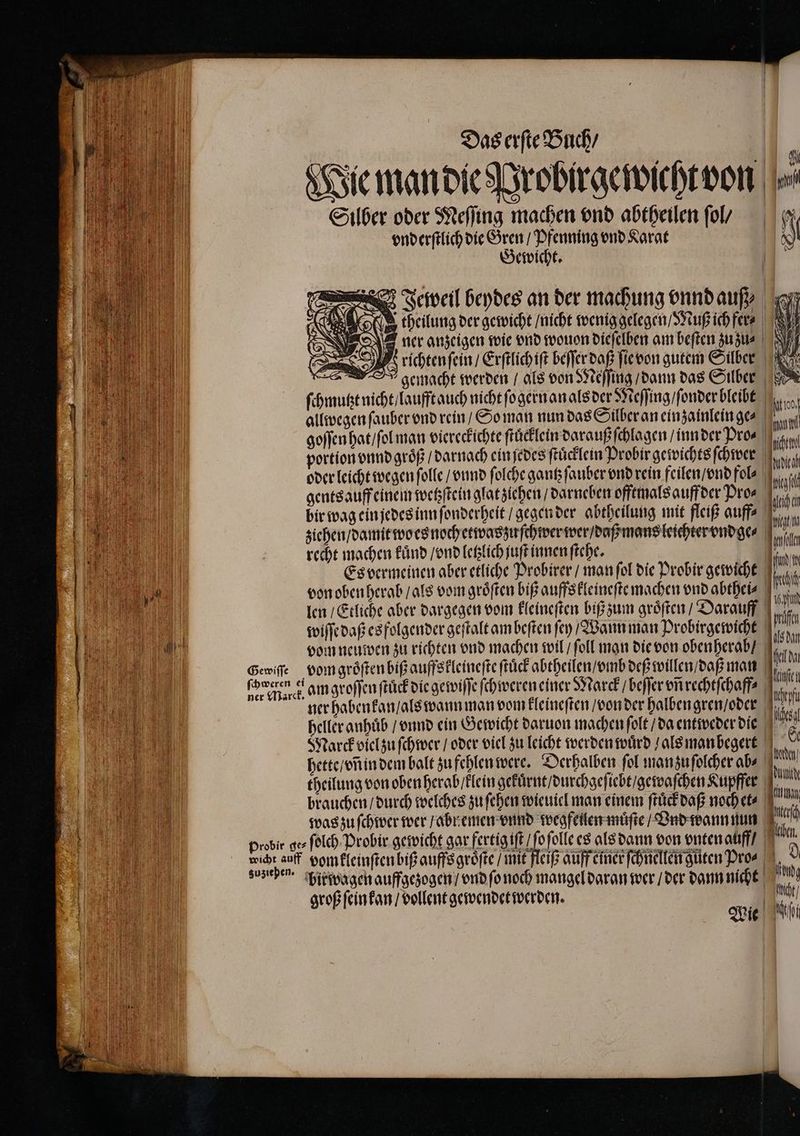 Das erſte Buch/
Wie man die Probirgewicht von
Silber oder Meſſing machen vnd abtheilen ſol/
vnd erſtlich die Gren / Pfenning vnd Karat
Gewicht.
Jeweil beydes an der machung vnnd auß⸗
theilung der gewicht / nicht wenig gelegen / Muß ich fer⸗
ner anzeigen wie vnd wouon dieſelben am beſten zu zu⸗
richten ſein / Erſtlich iſt beſſer daß ſie von gutem Silber
gemacht werden / als von Meſſing / dann das Silber
ſchmutzt nicht / laufft auch nicht ſo gern an als der Meſſing / ſonder bleibt
allwegen ſauber vnd rein / So man nun das Silber an ein zainlein ge⸗
goſſen hat / ſol man viereckichte ſtücklein darauß ſchlagen / inn der Pro⸗
portion vnnd größ / darnach ein jedes ſtücklein Probir gewichts ſchwer
oder leicht wegen ſolle / vnnd ſolche gantz ſauber vnd rein feilen / vnd fol⸗
gents auff einem wetzſtein glat ziehen / darneben offtmals auff der Pro⸗
bir wag ein jedes inn ſonderheit / gegen der abtheilung mit fleiß auff⸗
ziehen / damit wo es noch etwas zu ſchwer wer / daß mans leichter vnd ge⸗
recht machen künd / vnd letzlich juſt innen ſtehe.
Es vermeinen aber etliche Probirer / man ſol die Probir gewicht
von oben herab / als vom gröſten biß auffs kleineſte machen vnd abthei⸗
len / Etliche aber dargegen vom kleineſten biß zum gröſten / Darauff
wiſſe daß es folgender geſtalt am beſten ſey / Wann man Probirgewicht
vom neuwen zu richten vnd machen wil / ſoll man die von oben herab /
Gewiſſe
ſchweren ei
ner Marck.
vom gröſten biß auffs kleineſte ſtück abtheilen / vmb deß willen / daß man
am groſſen ſtück die gewiſſe ſchweren einer Marck / beſſer vñ rechtſchaff⸗
ner haben kan / als wann man vom kleineſten / von der halben gren / oder
heller anhüb / vnnd ein Gewicht daruon machen ſolt / da entweder die
Marck viel zu ſchwer / oder viel zu leicht werden würd / als man begert
hette / vñ in dem balt zu fehlen were. Derhalben ſol man zu ſolcher ab⸗
theilung von oben herab / klein gekürnt / durchgeſiebt / gewaſchen Kupffer
brauchen / durch welches zu ſehen wieuiel man einem ſtück daß noch et⸗
was zu ſchwer wer / abnemen vnnd wegfeilen müſte / Vnd wann nun
Probir ge⸗
wicht auff
zuziehen.
ſolch Probir gewicht gar fertig iſt / ſo ſolle es als dann von vnten auff /
vom kleinſten biß auffs gröſte / mit fleiß auff einer ſchnellen güten Pro⸗
birwagen auffgezogen / vnd ſo noch mangel daran wer / der dann nicht
groß ſein kan / vollent gewendet werden.
Wie